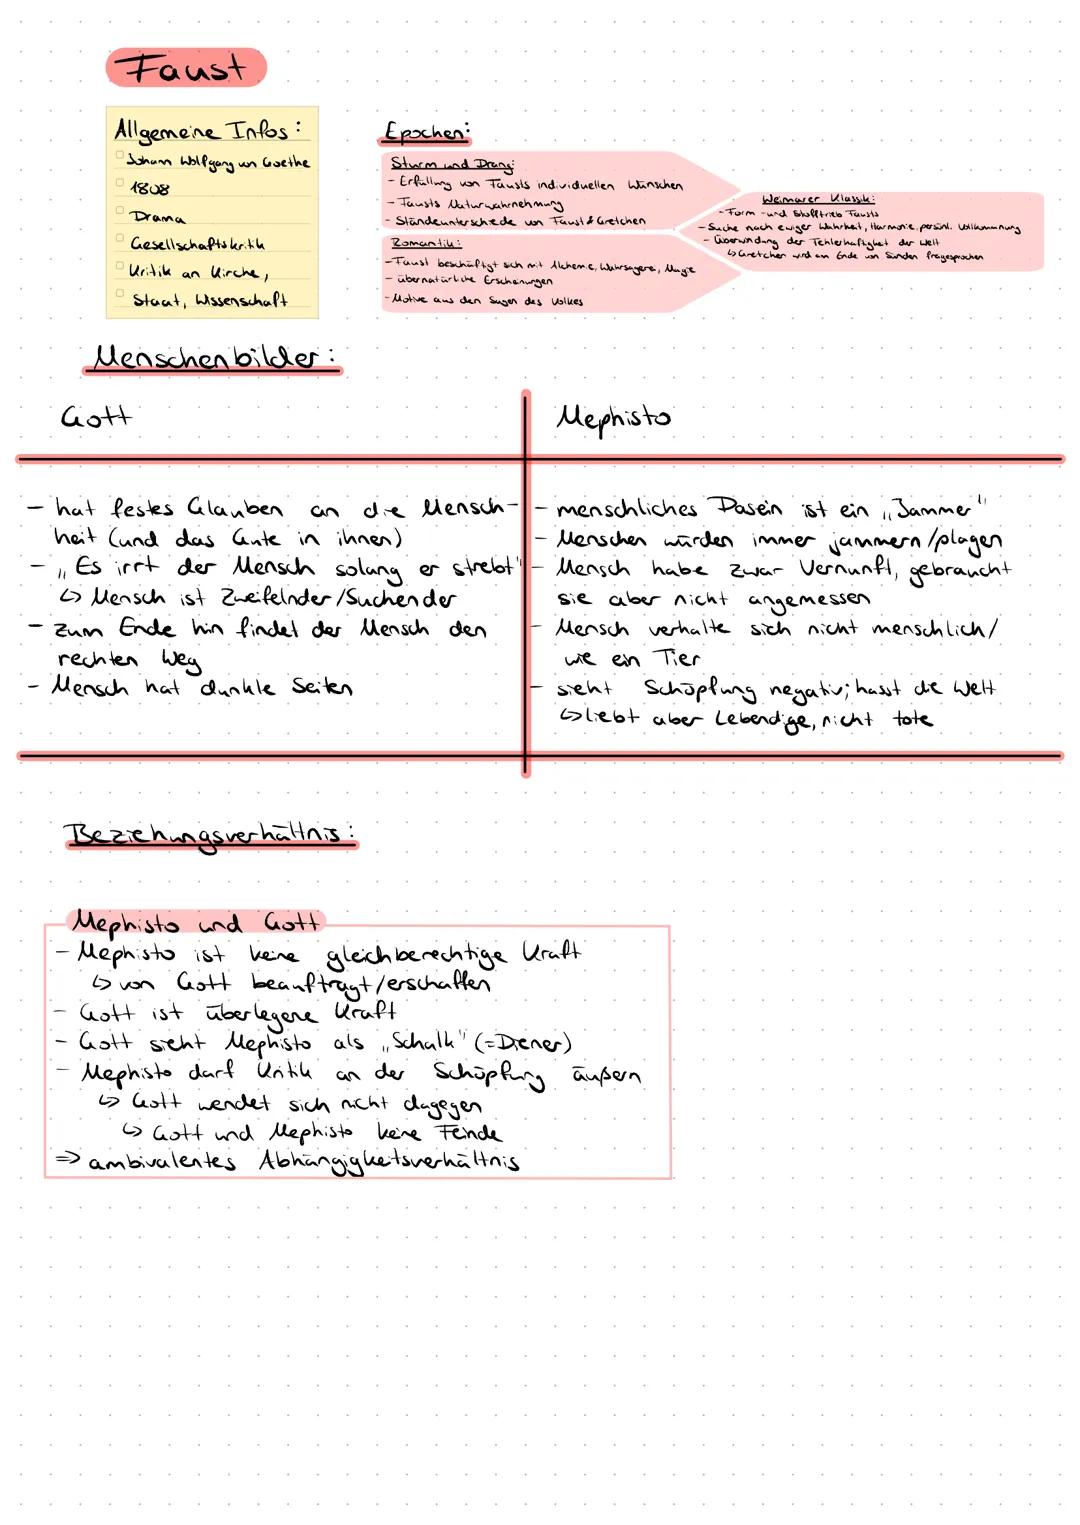 Faust
Allgemeine Infos:
Johann Wolfgang von Goethe
1808
Drama
Gesellschaftskritik
Kritik an Kirche,
Staat, Wissenschaft
Epochen:
Sturm und Drang:
- Erfüllung von Fausts individuellen Wünschen
- Fausts Naturwahrnehmung
- Ständeunterschiede von Faust & Gretchen
Romantik:
- Faust beschäftigt sich mit Alchemie, Wahrsagerei, Magie
- übernatürliche Erscheinungen
- Motive aus den Sagen des Volkes
Weimarer Klassik:
- Form - und Stofftrieb Fausts
- Suche nach ewiger Wahrheit, Harmonie, persönl. Vollkommnung
- Überwindung der Fehlerhaftigkeit der Welt
↳ Gretchen wird am Ende von Sünden freigesprochen
Menschenbilder:
Gott
- hat festes Glauben an die Mensch-
heit (und das Gute in ihnen)
- „Es irrt der Mensch solang er strebt"
↳ Mensch ist Zweifelnder/Suchender
- zum Ende hin findet der Mensch den
rechten Weg
- Mensch hat dunkle Seiten
Mephisto
- menschliches Dasein ist ein „Jammer"
- Menschen würden immer jammern/plagen
- Mensch habe zwar Vernunft, gebraucht
sie aber nicht angemessen
- Mensch verhalte sich nicht menschlich/
wie ein Tier
- sieht Schöpfung negativ; hasst die Welt
↳ liebt aber Lebendige, nicht tote
Beziehungsverhältnis:
Mephisto und Gott
- Mephisto ist keine gleichberechtige Kraft
↳ von Gott beauftragt/erschaffen
- Gott ist überlegene Kraft
- Gott sieht Mephisto als „Schalk" (=Diener)
- Mephisto darf Kritik an der Schöpfung äußern
↳ Gott wendet sich nicht dagegen
↳ Gott und Mephisto keine Feinde
⇒ ambivalentes Abhängigkeitsverhältnis